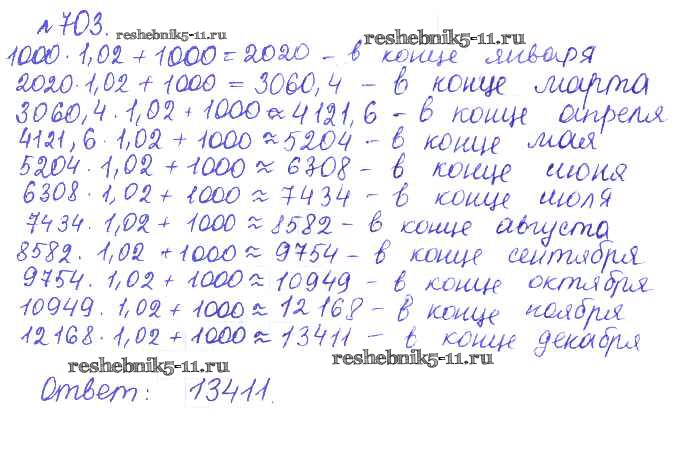 №703.
reshebnik5-11.ru
reshebnik5-11.ru
1000·1,02+1000=2020 - в конце января
2020·1,02+1000=3060,4 - в конце марта
3060,4·1,02+1000≈4121,6 - в конце апреля
4121,6·1,02+1000≈5204 - в конце мая
5204·1,02+1000≈6308 - в конце июня
6308·1,02+1000≈7434 - в конце июля
7434·1,02+1000≈8582 - в конце августа
8582·1,02+1000≈9754 - в конце сентября
9754·1,02+1000≈10949 - в конце октября
10949·1,02+1000≈12168 - в конце ноября
12168·1,02+1000≈13411 - в конце декабря
reshebnik5-11.ru
reshebnik5-11.ru
Ответ: 13411.